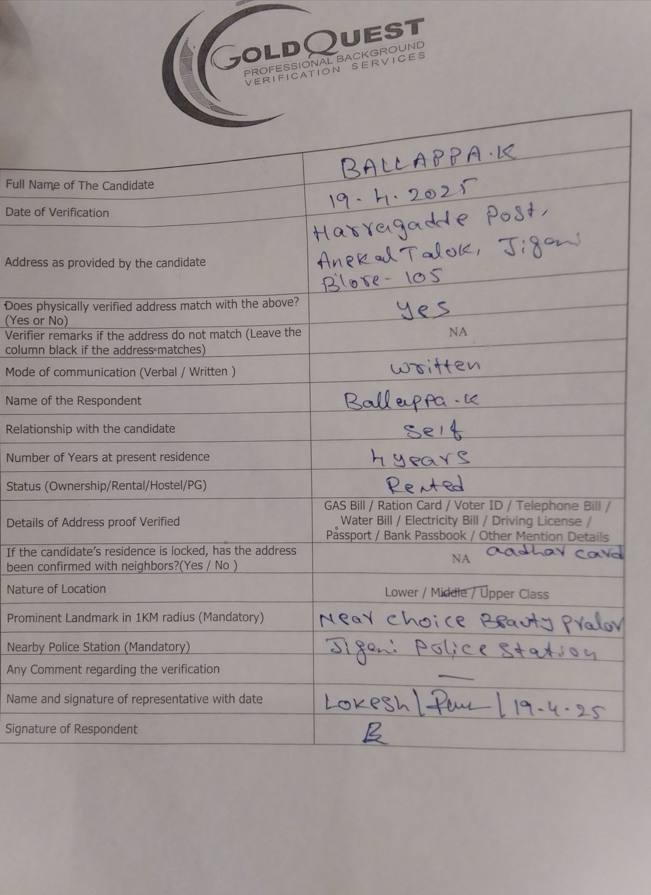 GOLDQUEST
PROFESSIONAL BACKGROUND
VERIFICATION SERVICES
Full Name of The Candidate BALLAPPA.K
Date of Verification 19.4.2025
Address as provided by the candidate Harragadde Post,
Anekal Talok, Jigani
B'lore - 105
Does physically verified address match with the above?
(Yes or No) Yes
Verifier remarks if the address do not match (Leave the
column black if the address matches) NA
Mode of communication (Verbal / Written ) written
Name of the Respondent Ballappa.K
Relationship with the candidate Self
Number of Years at present residence 4 years
Status (Ownership/Rental/Hostel/PG) Rented
Details of Address proof Verified GAS Bill / Ration Card / Voter ID / Telephone Bill /
Water Bill / Electricity Bill / Driving License /
Passport / Bank Passbook / Other Mention Details
aadhar card
If the candidate's residence is locked, has the address
been confirmed with neighbors?(Yes / No ) NA
Nature of Location Lower / Middle / Upper Class
Prominent Landmark in 1KM radius (Mandatory) Near Choice Beauty Pralor
Nearby Police Station (Mandatory) Jigani Police Station
Any Comment regarding the verification —
Name and signature of representative with date Lokesh | | 19-4-25
Signature of Respondent